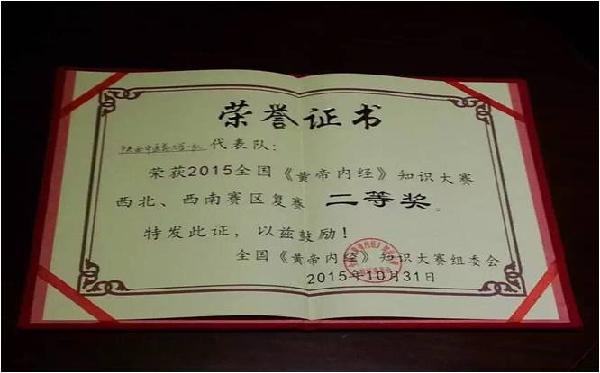 荣誉证书
陕西中医药大学一队 代表队：
荣获2015全国《黄帝内经》知识大赛
西北、西南赛区复赛 二等奖。
特发此证，以兹鼓励！
全国《黄帝内经》知识大赛组委会
2015年10月31日